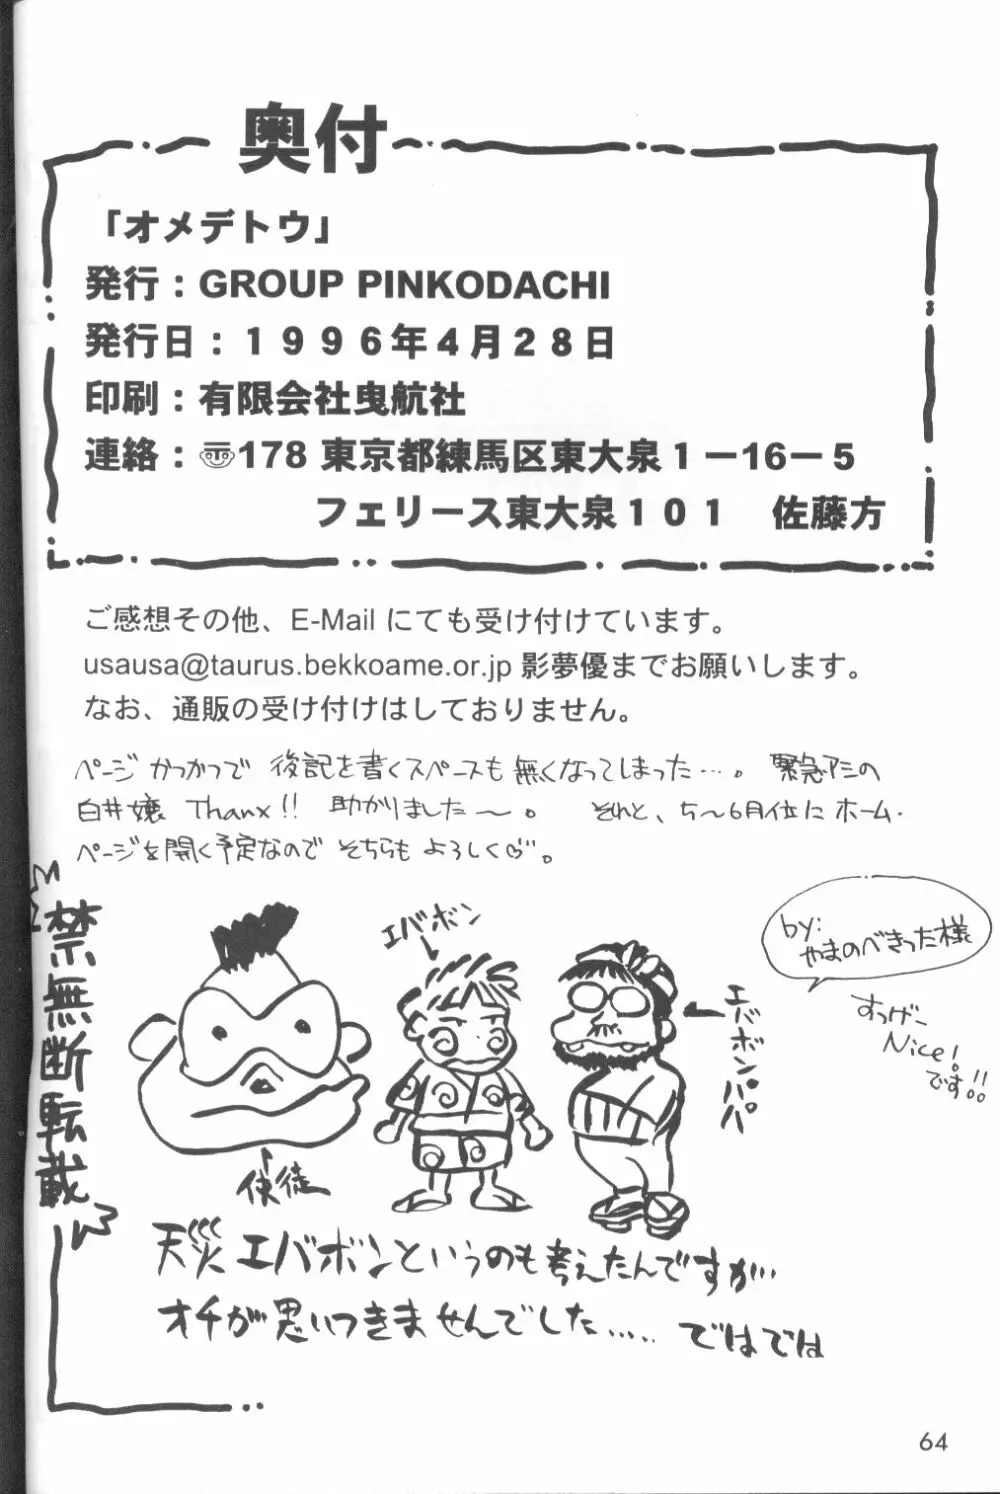 奥付
「オメデトウ」
発行：GROUP PINKODACHI
発行日：１９９６年４月２８日
印刷：有限会社曳航社
連絡：〠178 東京都練馬区東大泉１－16－5
フェリース東大泉１０１　佐藤方
ご感想その他、E-Mail にても受け付けています。
usausa@taurus.bekkoame.or.jp 影夢優までお願いします。
なお、通販の受け付けはしておりません。
ページかつかつで 後記を書くスペースも無くなってしまった…。 緊急アシの
白井嬢 Thanx!! 助かりました〜。 それと、5〜6月位にホーム・
ページを開く予定なので そちらもよろしく♡。
禁無断転載
エバボン
by:
やまのべきった様
すっげー
Nice!
です!!
エバボンパパ
使徒
天災エバボンというのも考えたんですが…
オチが思いつきませんでした….. ではでは
64